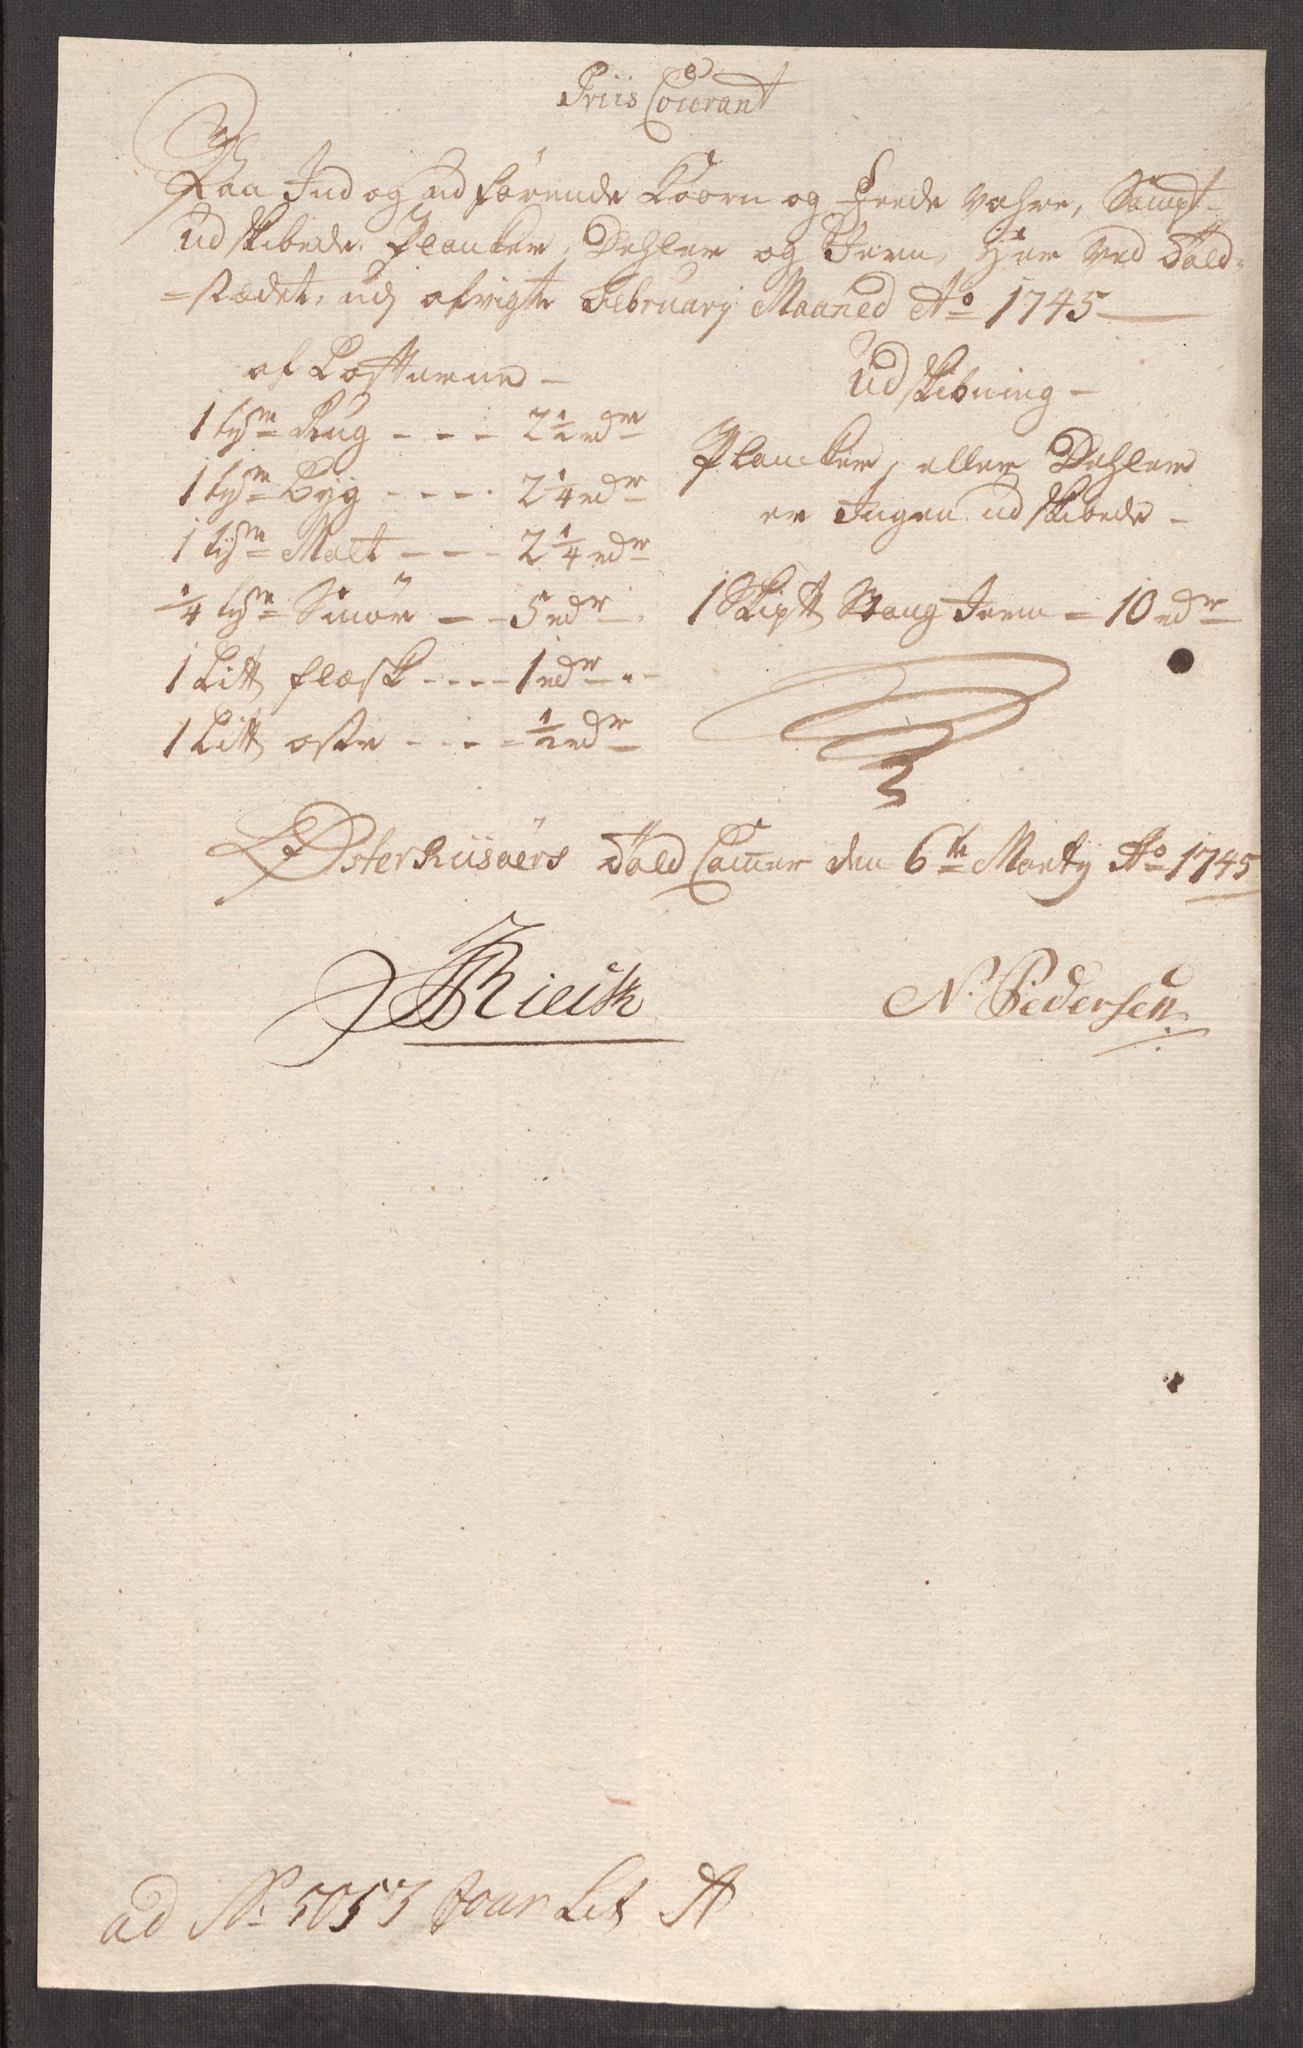 Priis Courant
Paa Ind og udförende Koorn og feede vahre, Sampt
udskibede Plancker, Dehler og Jern, Her ved Told-
=stædet, udj afvigte February Maaned Ao 1745
af Losterne
1 tønde Rug - - - 2 1/2 rdr
1 tønde Byg - - - - 2 1/4 rdr
1 tønde Malt - - - 2 1/4 rdr
1/4 tønde Smör - - 5 rdr
1 Litt flæsk - - - - 1 rdr - -
1 Litt oste - - - - 1/2 rdr
Udskibning -
Plancker, eller Dehler
er Ingen udskibede -
1 Skiptt Stang Jern - 10 rdr
Østerrüsöers Told Cammer den 6te Marty Ao 1745
N. Pedersen
ad No. 5053 Jour Lit A